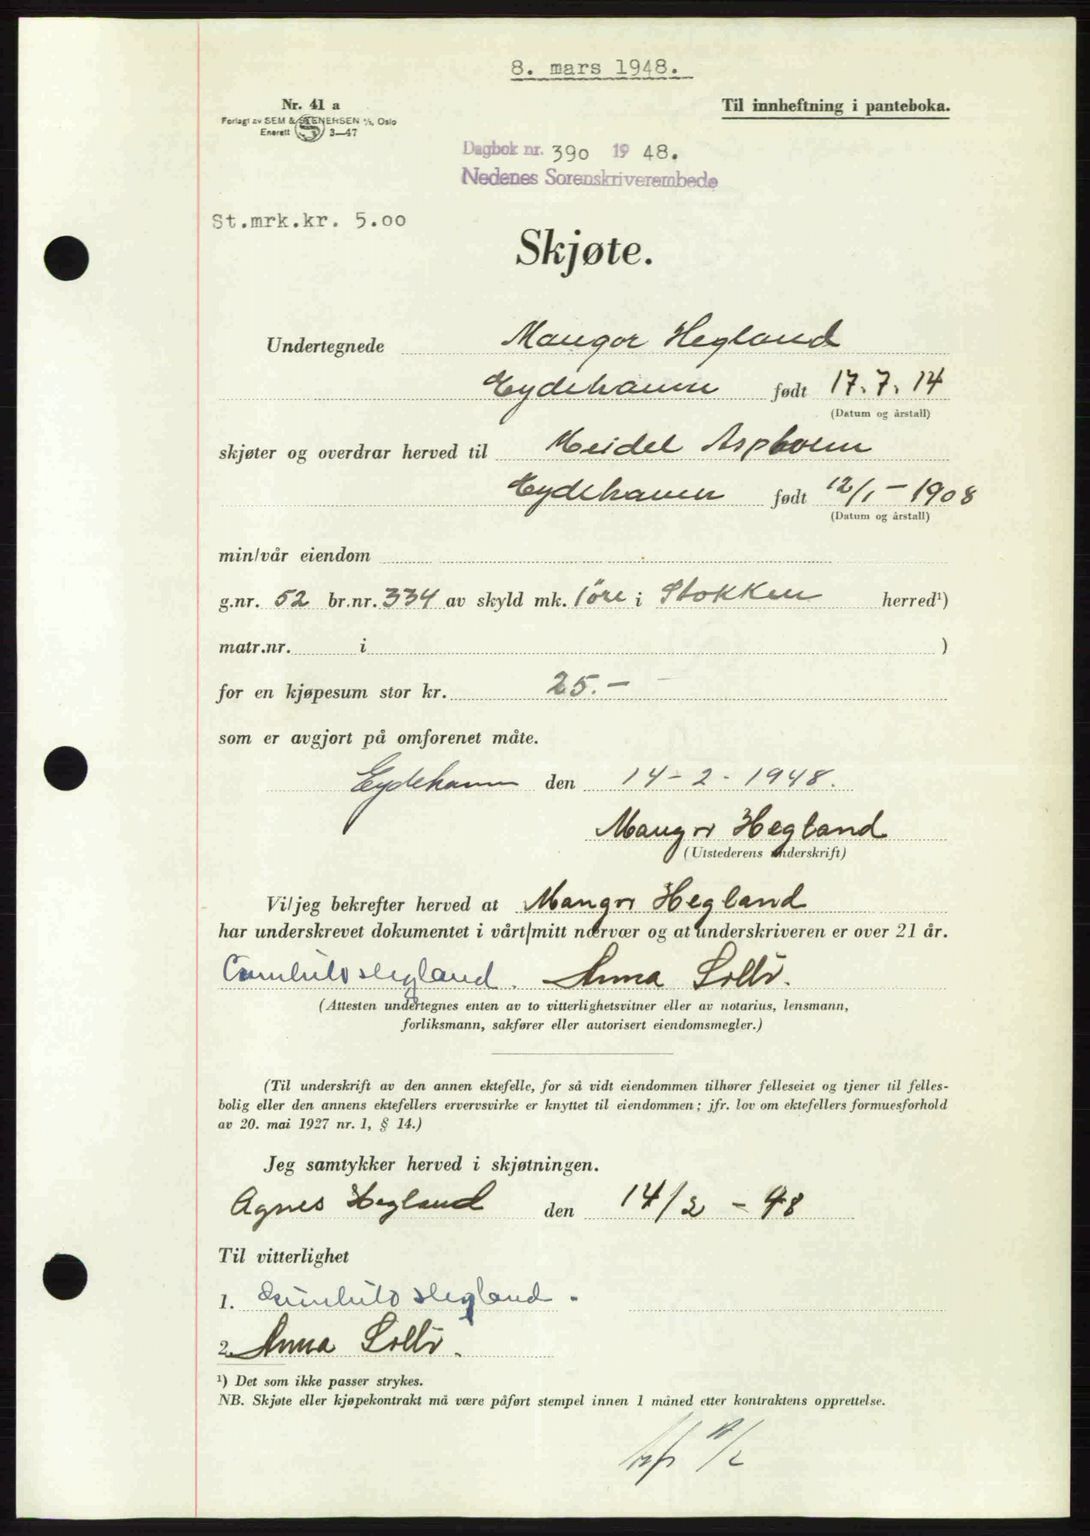 8. mars 1948.
Nr. 41 a
Til innheftning i panteboka.
Forlagt av SEM & STENERSEN A/S, Oslo
Enerett 3—47
Dagbok nr. 390 1948.
Nedenes Sorenskriverembede
St.mrk.kr. 5.00
Skjøte.
Undertegnede Mangor Hegland
Eydehavn født 17.7.14
(Datum og årstall)
skjøter og overdrar herved til Meidel Aspholm
Eydehavn født 12/1-1908
(Datum og årstall)
min/vår eiendom
g.nr. 52 br.nr. 334 av skyld mk. 1øre i Stokken herred¹)
matr.nr. i )
for en kjøpesum stor kr. 25.-
som er avgjort på omforenet måte.
Eydehavn den 14-2-1948.
Mangor Hegland
(Utstederens underskrift)
Vi/jeg bekrefter herved at Mangor Hegland
har underskrevet dokumentet i vårt/mitt nærvær og at underskriveren er over 21 år.
Hegland. Anna
(Attesten undertegnes enten av to vitterlighetsvitner eller av notarius, lensmann,
forliksmann, sakfører eller autorisert eiendomsmegler.)
(Til underskrift av den annen ektefelle, for så vidt eiendommen tilhører felleseiet og tjener til felles-
bolig eller den annens ektefellers ervervsvirke er knyttet til eiendommen; jfr. lov om ektefellers formuesforhold
av 20. mai 1927 nr. 1, § 14.)
Jeg samtykker herved i skjøtningen.
Agnes Hegland den 14/2 - 48
Til vitterlighet
1. Hegland.
2. Anna
¹) Det som ikke passer strykes.
NB. Skjøte eller kjøpekontrakt må være påført stempel innen 1 måned etter kontraktens opprettelse.